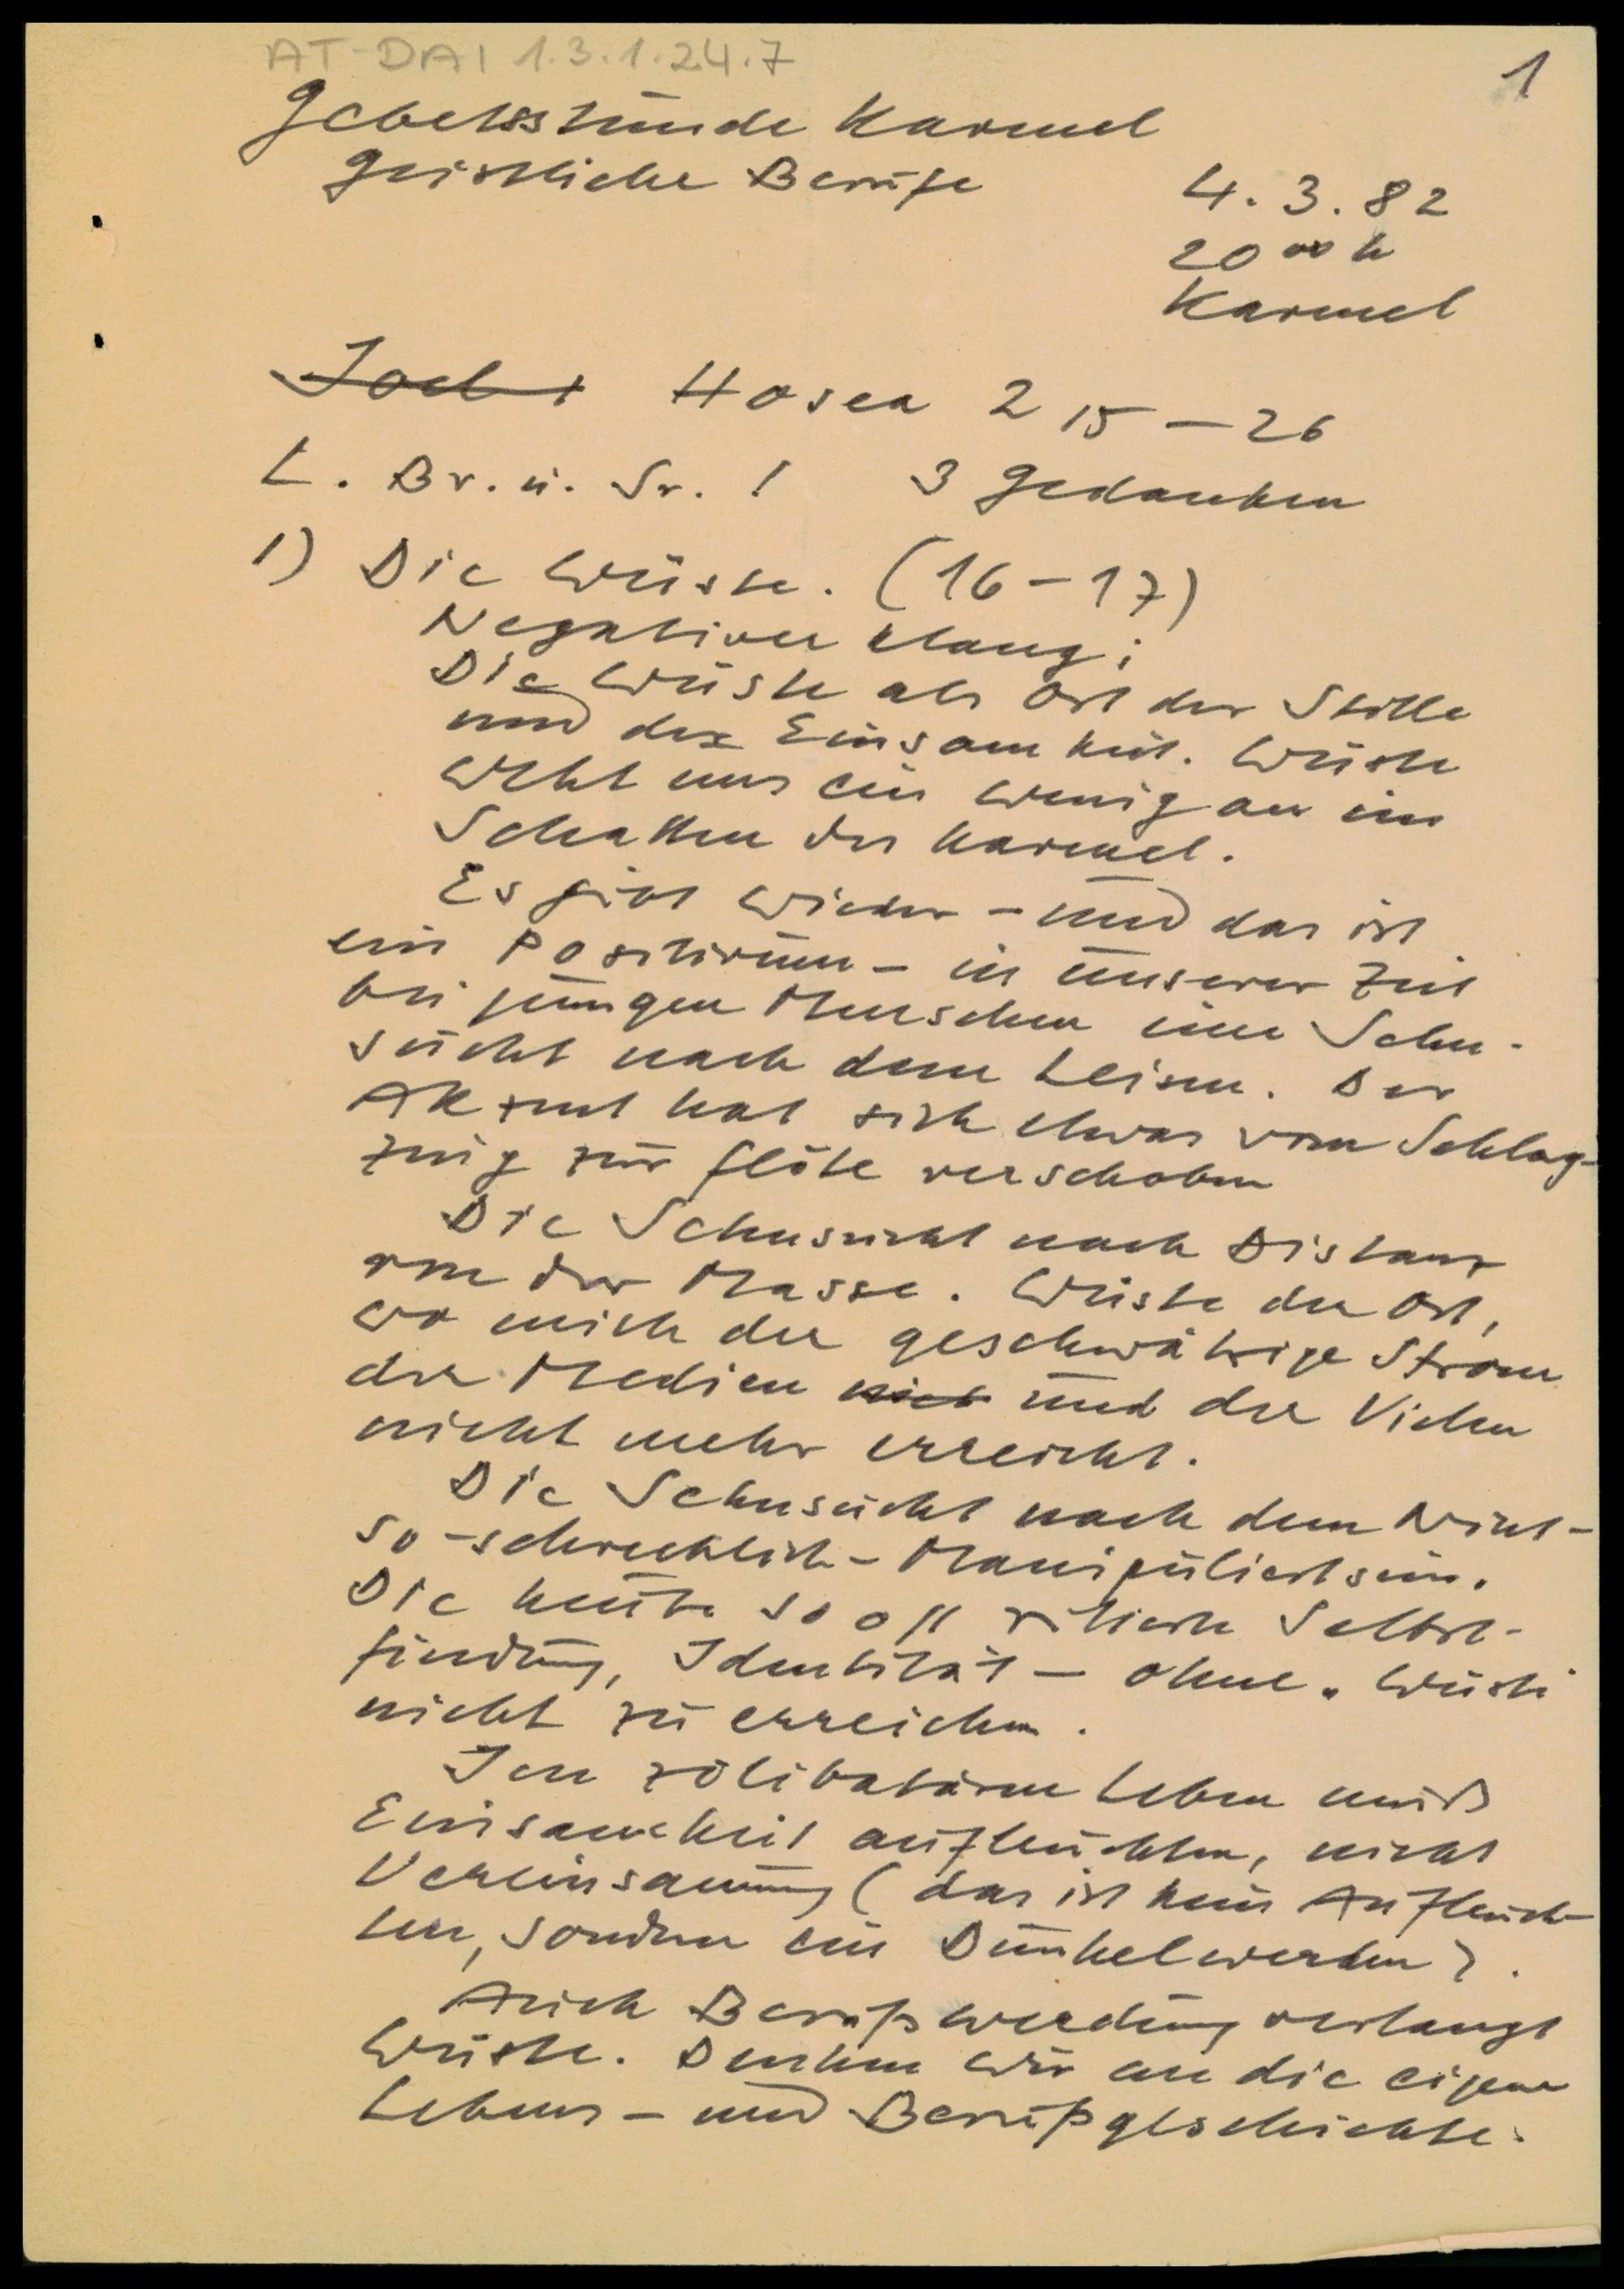 AT-DAI 1.3.1.24.7
1
Gebetsstunde Karmel
Geistliche Berufe
4.3.82
20 00 h
Karmel
Joel 1 Hosea 2 15 – 26
L. Br. u. Sr. ! 3 Gedanken
1) Die Wüste. (16 – 17)
Negativer Klang;
Die Wüste als Ort der Stille
und der Einsamkeit. Wüste
weht uns ein wenig an im
Schatten des Karmel.
Es gibt wieder – und das ist
ein Positivum – in unserer Zeit
bei jungen Menschen eine Sehn-
sucht nach dem Leisen. Der
Akzent hat sich etwas vom Schlag-
zeug zur Flöte verschoben
Die Sehnsucht nach Distanz
von der Masse. Wüste der Ort,
wo mich der geschwätzige Strom
der Medien nicht und der Vielen
nicht mehr erreicht.
Die Sehnsucht nach dem Nicht-
so-schrecklich-Manipuliertsein.
Die heute so oft zitierte Selbst-
findung, Identität – ohne Wüste
nicht zu erreichen.
Im zölibatären Leben muß
Einsamkeit aufleuchten, nicht
Vereinsamung (das ist kein Aufleuch-
ten, sondern ein Dunkelwerden).
Auch Berufswerdung verlangt
Wüste. Denken wir an die eigene
Lebens- und Berufsgeschichte.